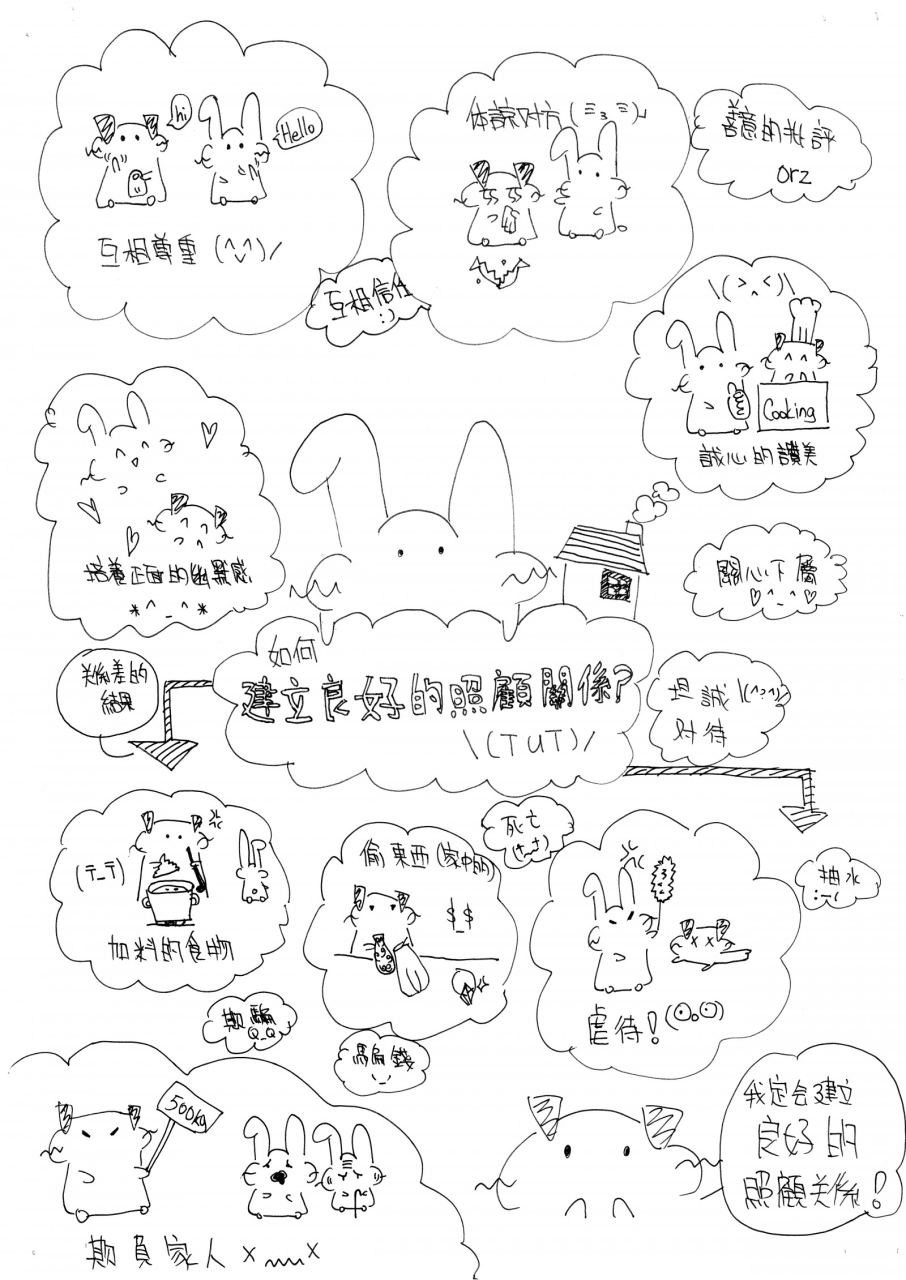 hi
Hello
互相尊重 (^◡^)/
互相信任
:)
体諒对方 (ミ3ミ)
善意的批評
orz
\(>^<)/
Cooking
誠心的讚美
培養正面的幽默感
*^_^*
關心下屬
♡^_^♡
如何
建立良好的照顧關係?
\(TUT)/
坦誠 \(^3^)/
对待
关係差的
結果
(T_T)
加料的食物
偷東西 (家中的)
$_$
死亡
(+_+)
虐待! (⊙o⊙)
抽水
:-(
欺騙
Q_Q
騙錢
500kg
欺負家人 x﹏x
我定会建立
良好的
照顧关係!